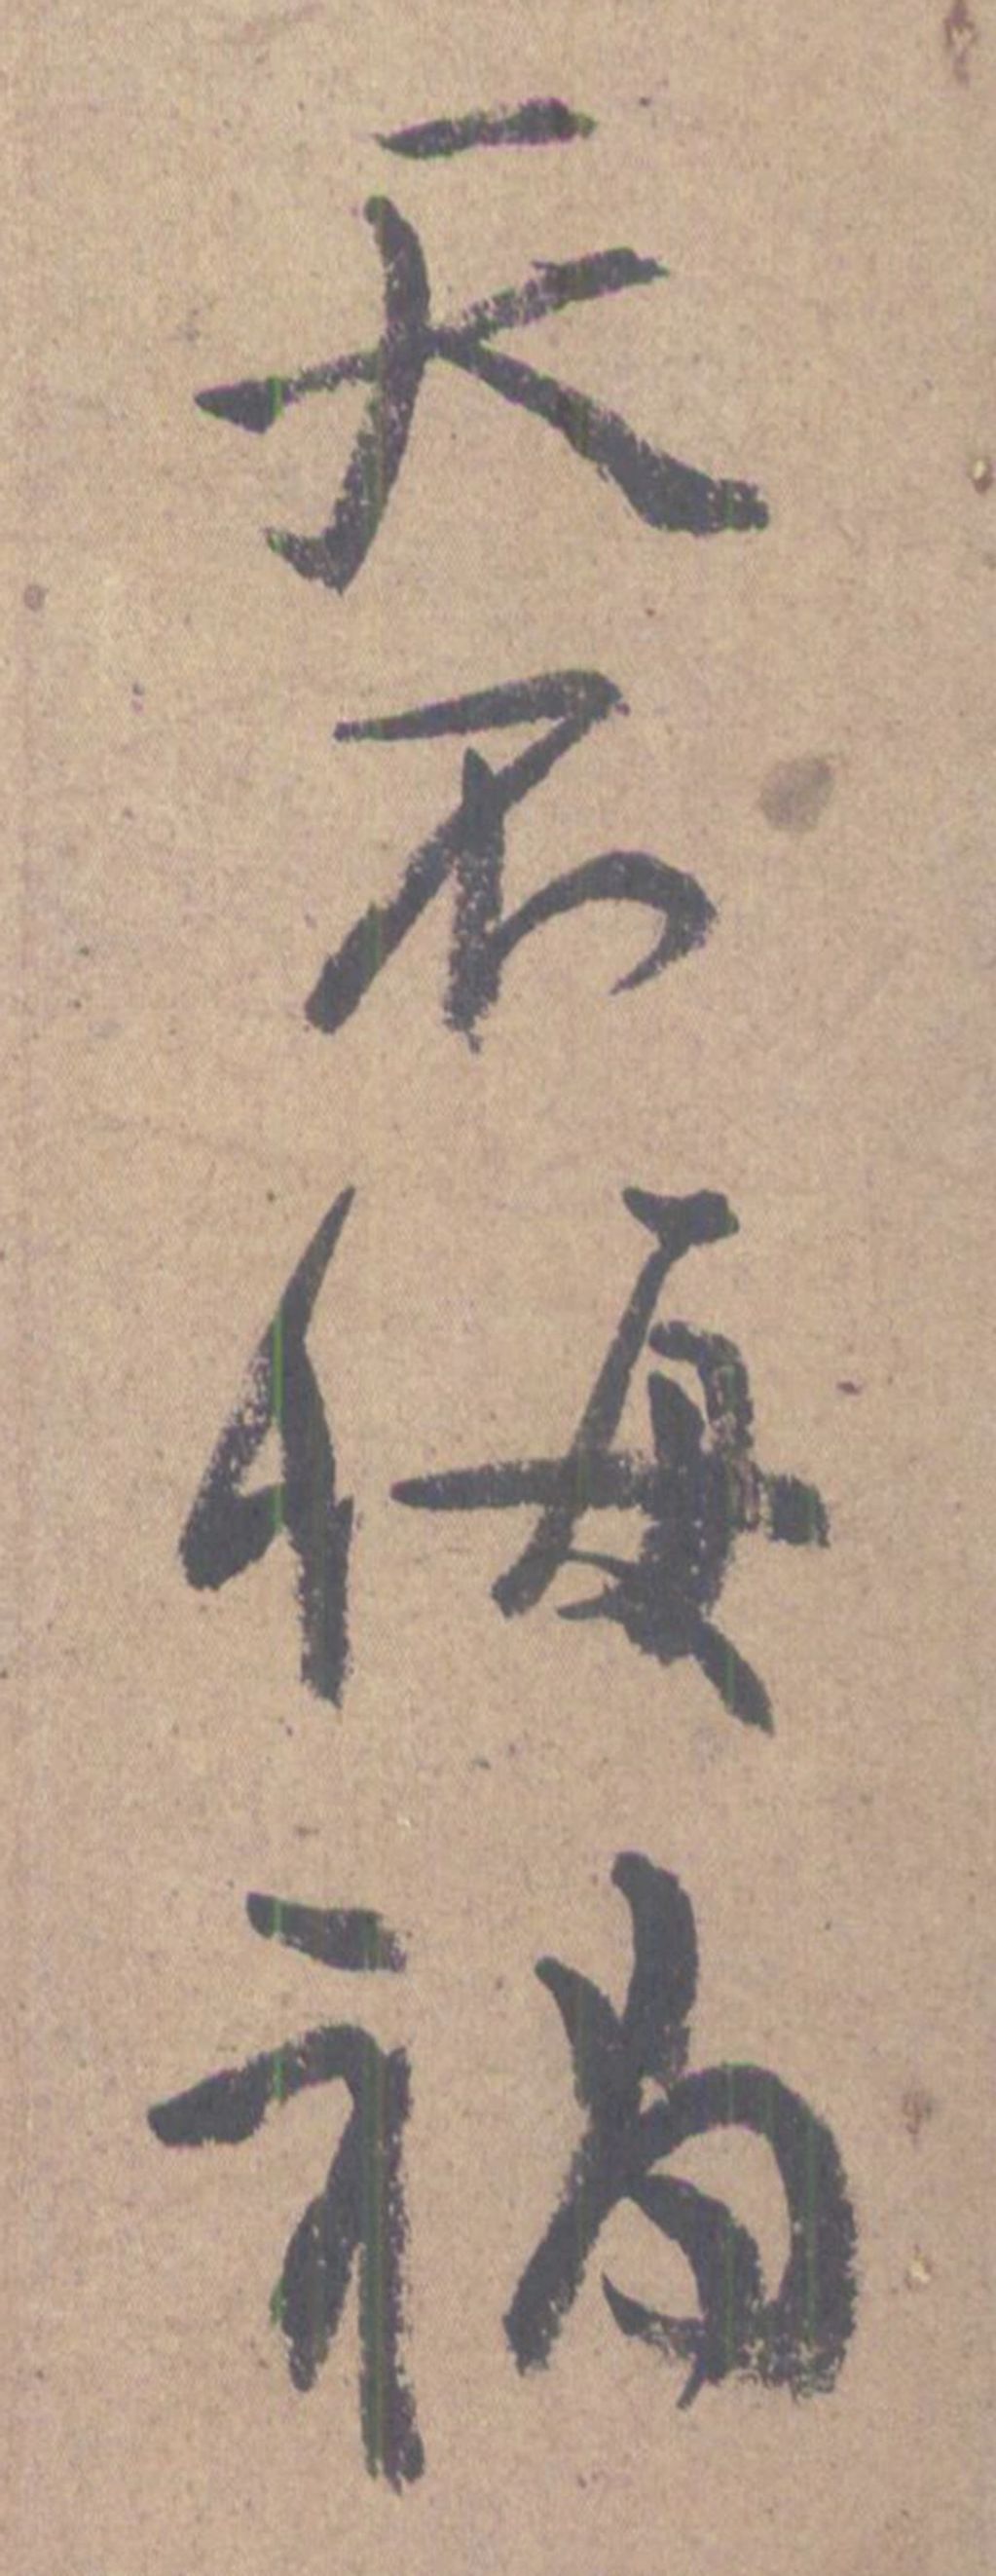 天不悔禍